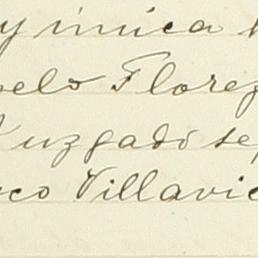 y única
elo Florez
Juzgado se
co Villavic